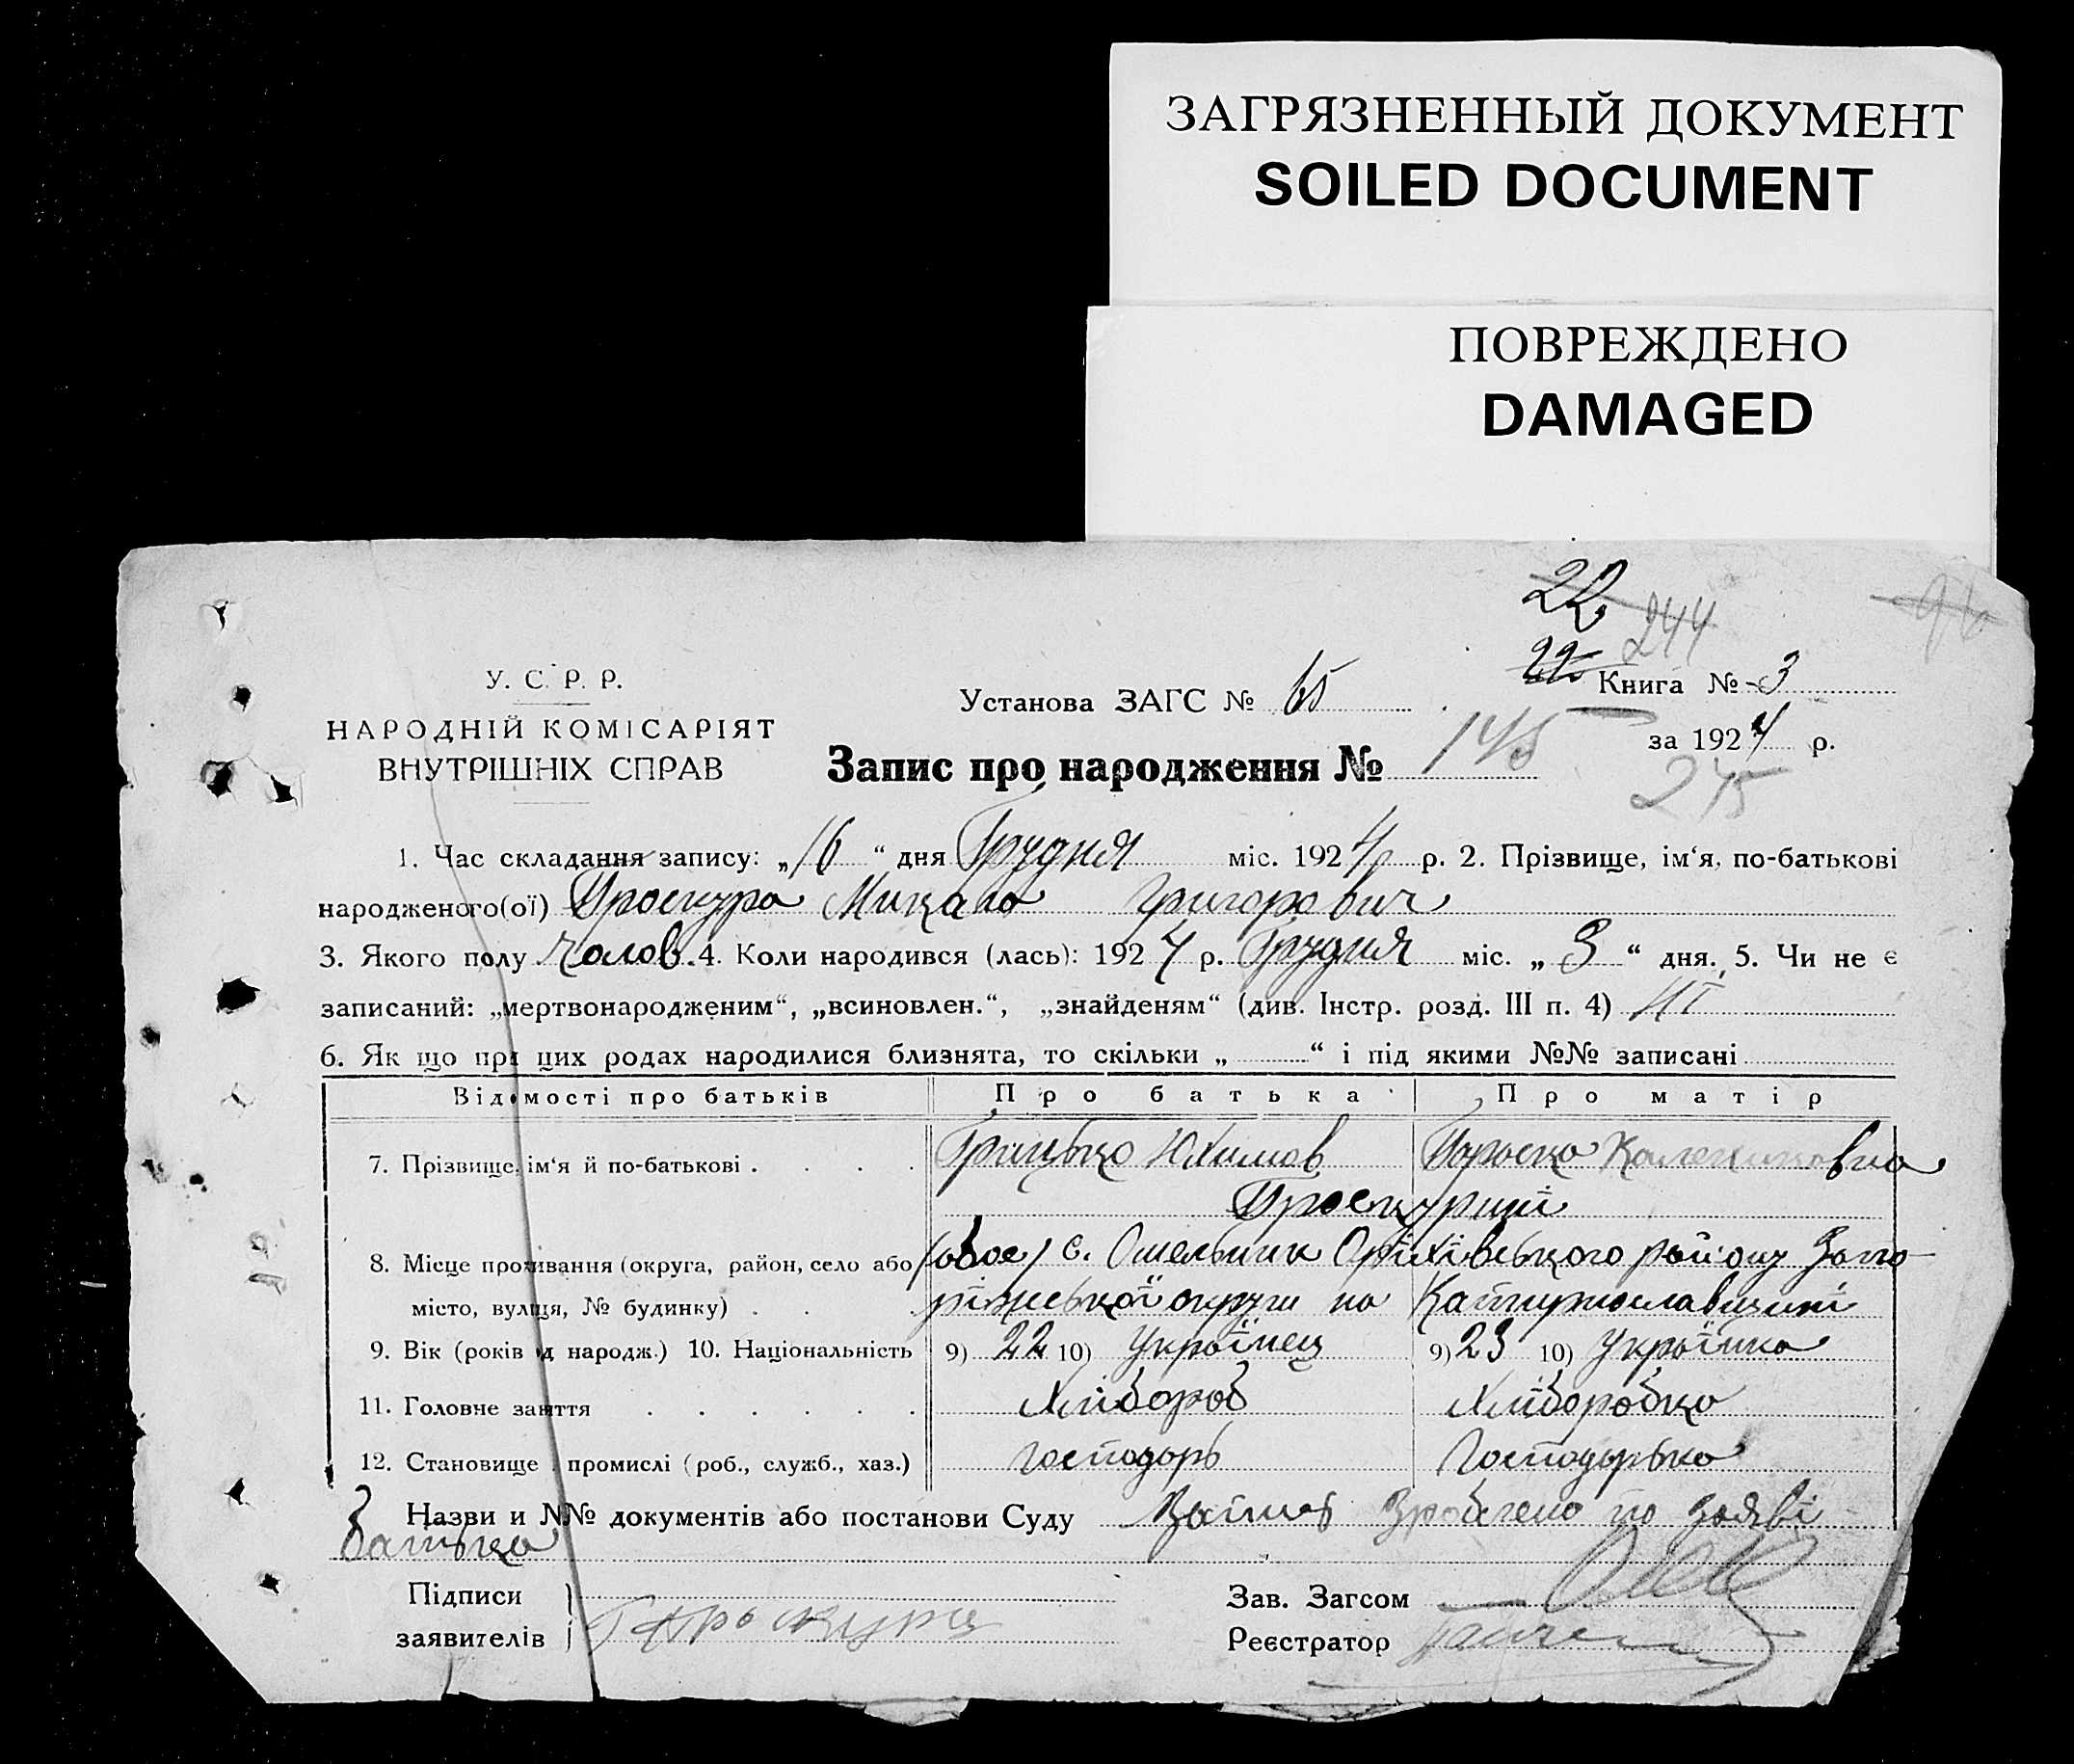 ЗАГРЯЗНЕННЫЙ ДОКУМЕНТ
SOILED DOCUMENT
ПОВРЕЖДЕНО
DAMAGED
22
244
96
22 Книга № 3
У. С. Р. Р.
Установа ЗАГС № 65
НАРОДНІЙ КОМІСАРІЯТ
за 1924 р.
ВНУТРІШНІХ СПРАВ
Запис про народження № 145
245
1. Час складання запису: „16“ дня Грудня міс. 1924 р. 2. Прізвище, ім‘я, по-батькові
народженого(ої) Проскура Микала Григорович
3. Якого полу Чолов. 4. Коли народився (лась): 1924 р. Грудня міс. „3“ дня. 5. Чи не є
записаний: „мертвонародженим“, „всиновлен.“, „знайденям“ (див. Інстр. розд. III п. 4) Ні
6. Як що при цих родах народилися близнята, то скільки „ “ і під якими №№ записані
Відомості про батьків Про батька Про матір
7. Прізвище, ім‘я й по-батькові . . . . Грицько Юхимов Параска
Проскурині
8. Місце проживання (округа, район, село або (обоє) с. Омельник Оріхівського району Запо-
місто, вулиця, № будинку) . . . ріжської округи на Катеринославщині
9. Вік (років від народж.) 10. Національність 9) 22 10) Українец 9) 23 10) Українка
11. Головне заняття . . . . . . Хлібороб Хліборобка
12. Становище в промислі (роб., служб., хаз.) Господарь Господарька
Назви и №№ документів або постанови Суду Запис Зроблено по заяві
батька
Підписи
заявителів Г Проскура
Зав. Загсом
Реєстратор